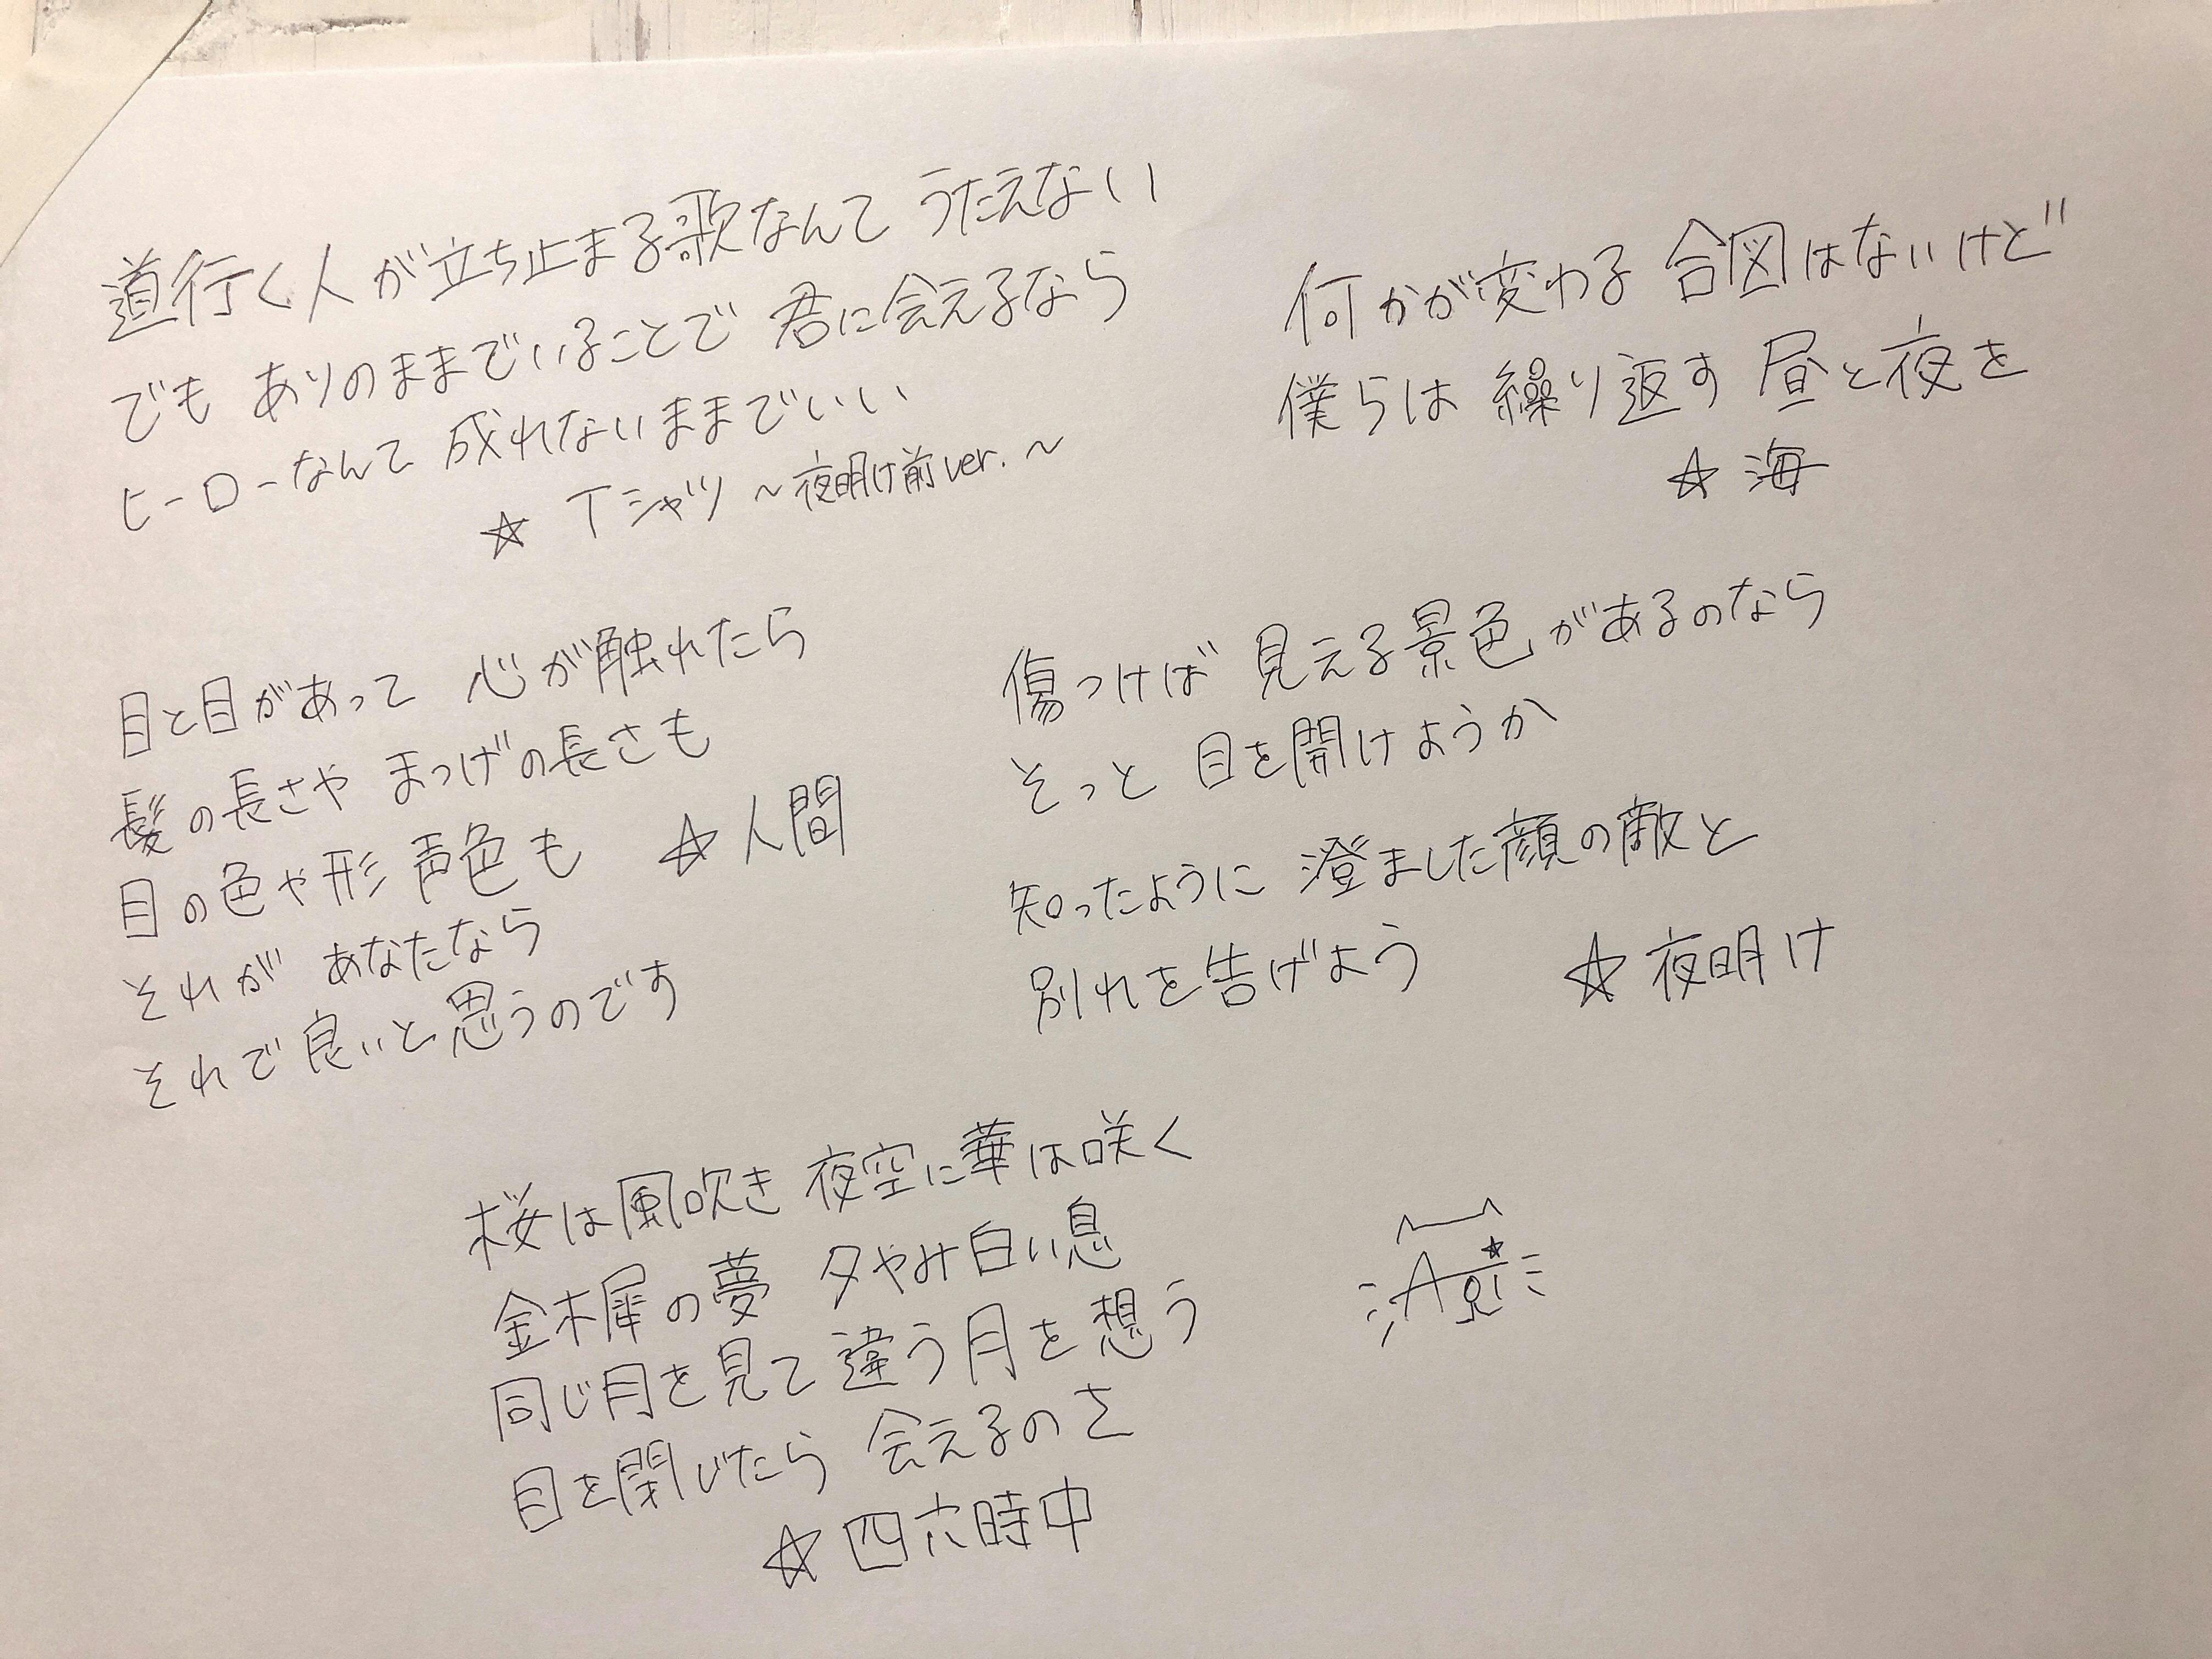 道行く人が立ち止まる歌なんて うたえない
でも ありのままでいることで 君に会えるなら
ヒーローなんて 成れないままでいい
☆ Tシャツ ~夜明け前ver.~
何かが変わる 合図はないけど
僕らは 繰り返す 昼と夜を
☆ 海
目と目があって 心が触れたら
髪の長さや まつげの長さも
目の色や形 声色も ☆ 人間
それが あなたなら
それで良いと思うのです
傷つけば 見える景色があるのなら
そっと 目を開けようか
知ったように 澄ました顔の敵と
別れを告げよう ☆ 夜明け
桜は風吹き 夜空に華は咲く
金木犀の夢 夕やみ白い息
同じ月を見て 違う月を想う
目を閉じたら 会えるのさ
☆ 四六時中